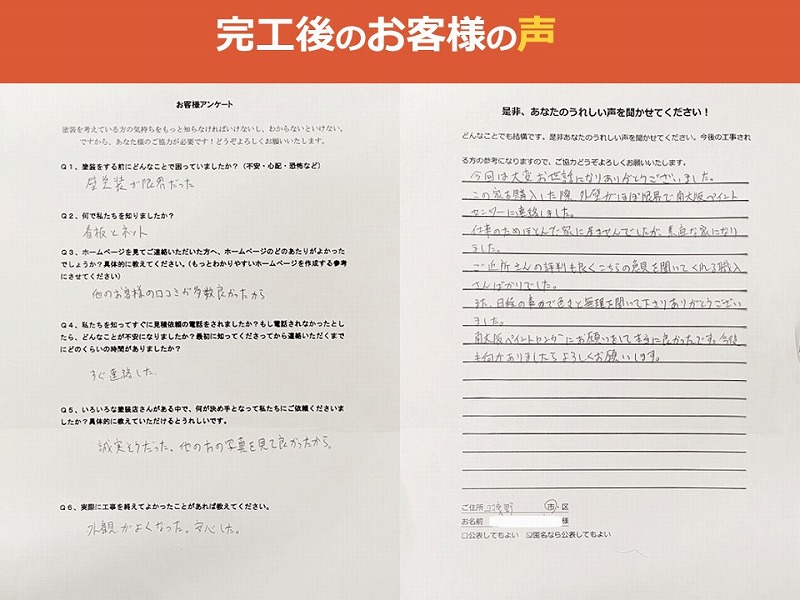 完工後のお客様の声
お客様アンケート
塗装を考えている方の気持ちをもっと知らなければいけないし、わからないといけない。
ですから、あなた様のご協力が必要です！どうぞよろしくお願いいたします。
Q1、塗装をする前にどんなことで困っていましたか？（不安・心配・恐怖など）
壁塗装が限界だった
Q2、何で私たちを知りましたか？
看板とネット
Q3、ホームページを見てご連絡いただいた方へ、ホームページのどのあたりがよかった
でしょうか？具体的に教えてください。（もっとわかりやすいホームページを作成する参考
にさせてください）
他のお客様の口コミが多数良かったから
Q4、私たちを知ってすぐに見積依頼の電話をされましたか？もし電話されなかったとし
たら、どんなことが不安になりましたか？最初に知ってくださってから連絡いただくまで
にどのくらいの時間がありましたか？
すぐ連絡した
Q5、いろいろな塗装店さんがある中で、何が決め手となって私たちにご依頼くださいま
したか？具体的に教えていただけるとうれしいです。
誠実そうだった。他の方の写真を見て良かったから。
Q6、実際に工事を終えてよかったことがあれば教えてください。
外観がよくなった。安心した。
是非、あなたのうれしい声を聞かせてください！
どんなことでも結構です。是非あなたのうれしい声を聞かせてください。今後の工事され
る方の参考になりますので、ご協力どうぞよろしくお願いいたします。
今回は大変お世話になりありがとうございました。
この家を購入した際、外壁がほぼ限界で南大阪ペイント
センターに連絡しました。
仕事のためほとんど家に居ませんでしたが、素敵な家になり
ました。
ご近所さんの評判も良くこちらの意見を聞いてくれる職人
さんばかりでした。
また、日程の事で色々と無理を聞いて下さりありがとうござい
ました。
南大阪ペイントセンターにお願いをして本当に良かったです。今後
も何かありましたらよろしくお願いします。
ご住所 羽曳野 市・区
お名前 様
□公表してもよい ☑匿名なら公表してもよい